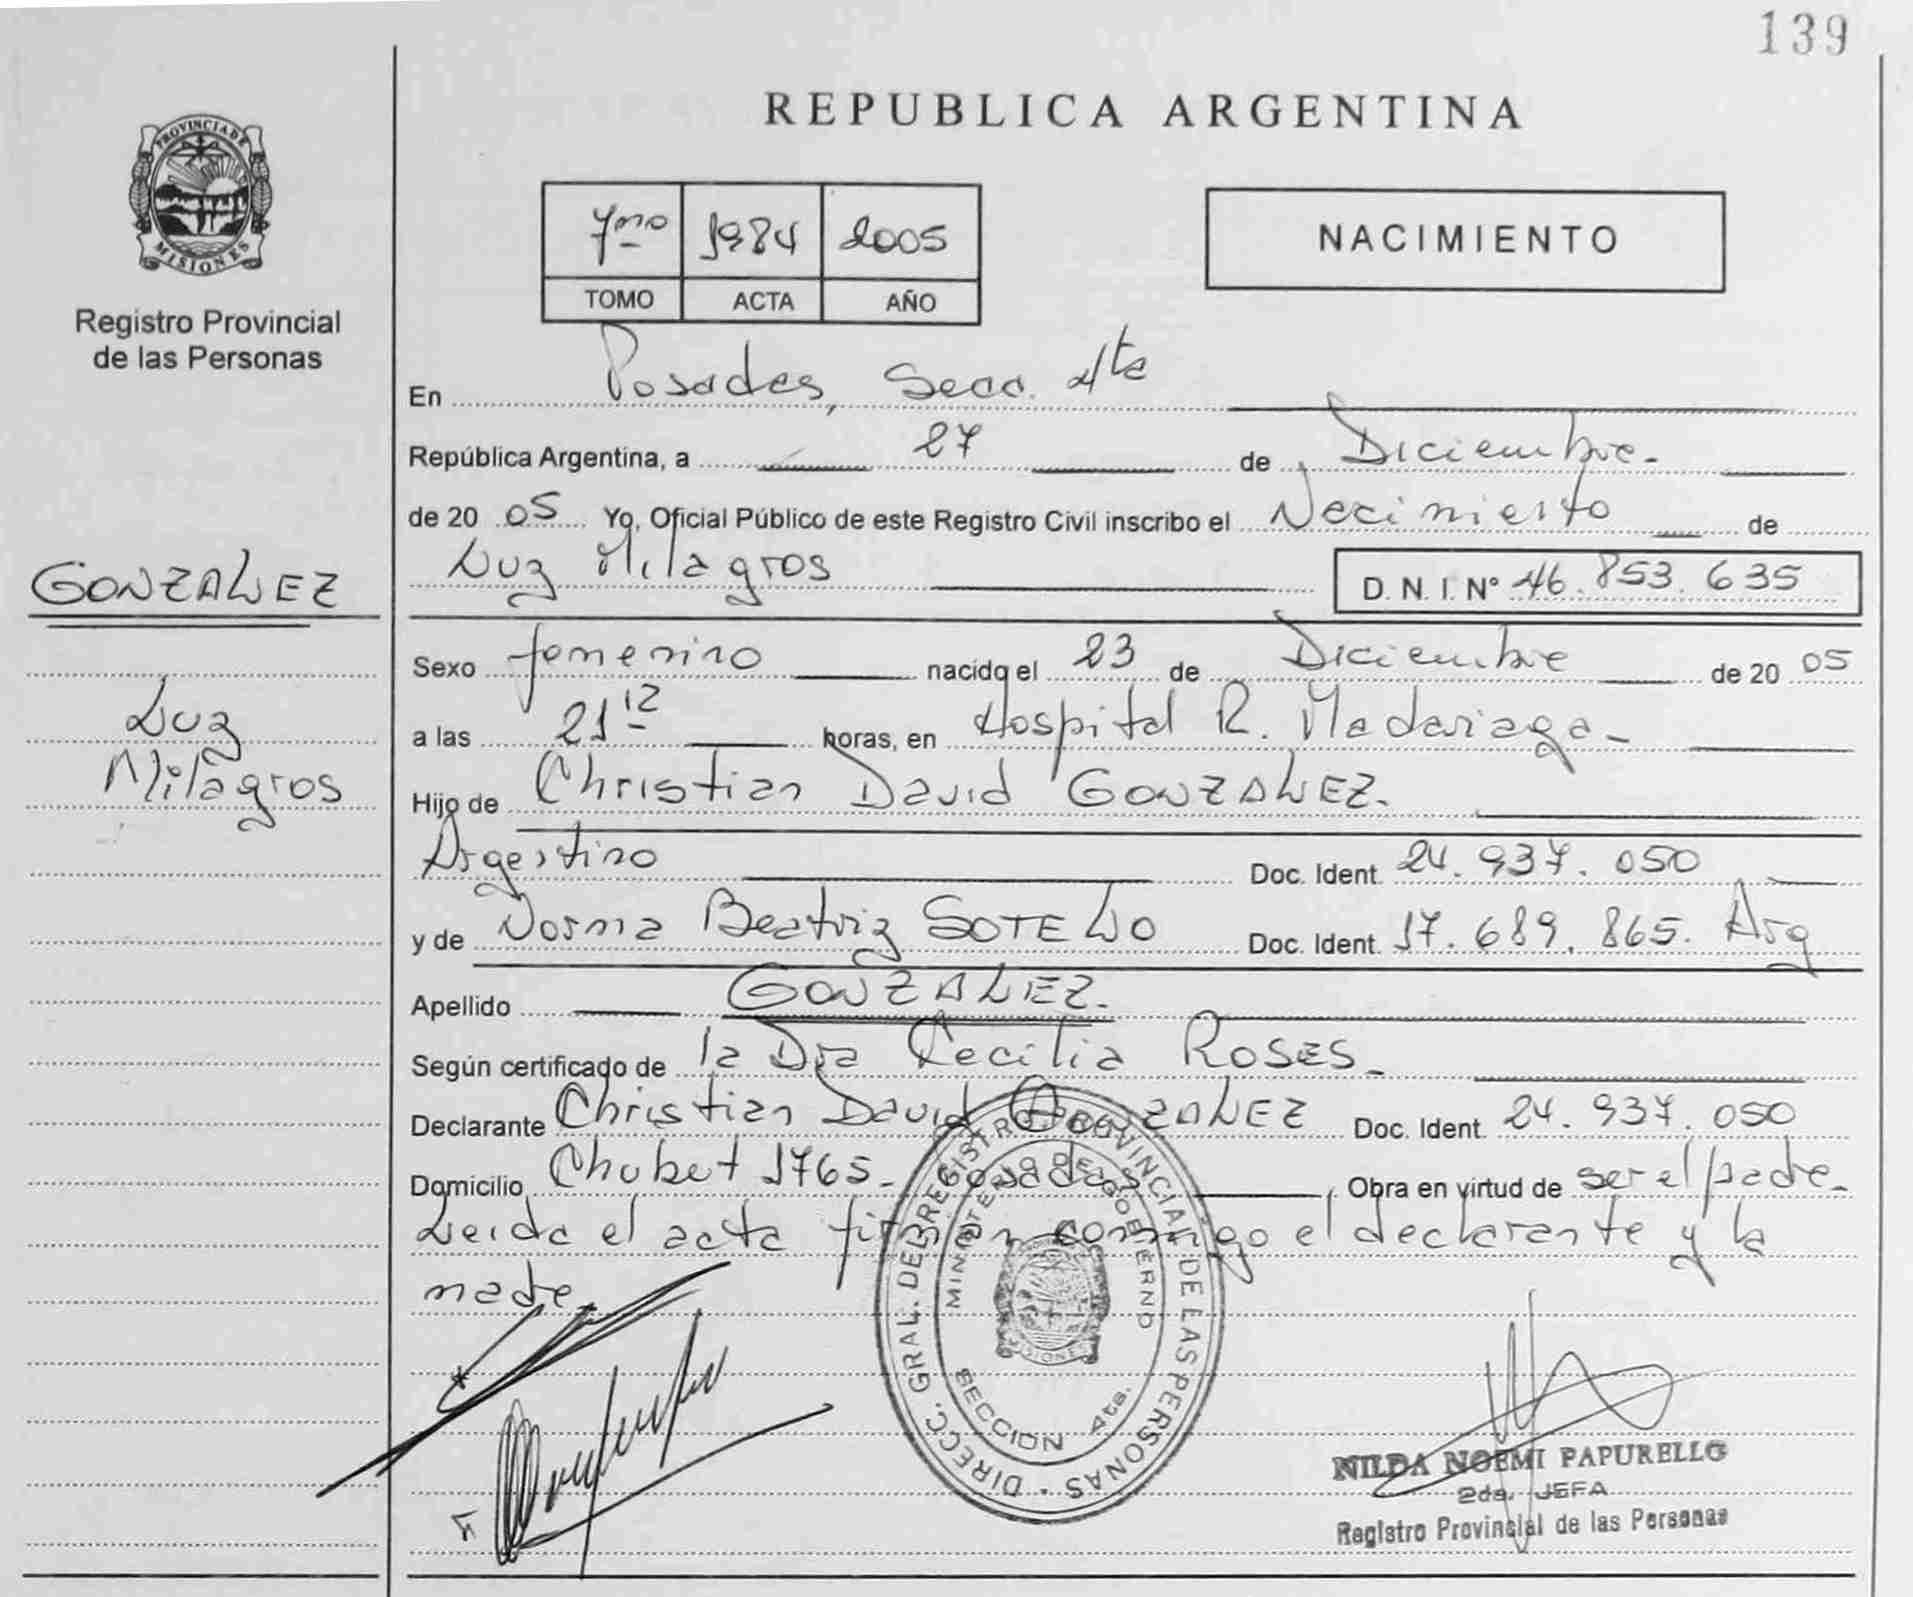 139
REPUBLICA ARGENTINA
PROVINCIA DE
MISIONES
Registro Provincial
de las Personas
7mo 1984 2005
TOMO ACTA AÑO
NACIMIENTO
En Posadas, Secc. 4ta
República Argentina, a 27 de Diciembre.
de 20 05 Yo, Oficial Público de este Registro Civil inscribo el Nacimiento de
Luz Milagros D. N. I. N° 46.853.635
GONZALEZ
Luz
Milagros
Sexo femenino nacido el 23 de Diciembre de 20 05
a las 21 12 horas, en Hospital R. Madariaga-
Hijo de Christian David GONZALEZ.
Argentino Doc. Ident. 24.937.050
y de Norma Beatriz SOTELO Doc. Ident. 17.689.865. Arg
Apellido GONZALEZ.
Según certificado de la Dra Cecilia ROSES.
Declarante Christian David GONZALEZ Doc. Ident. 24.937.050
Domicilio Chubut 1765- Posadas, Obra en virtud de ser el padre-
Leida el acta firman conmigo el declarante y la
madre
DIRECC. GRAL. DEL REGISTRO PROVINCIAL DE LAS PERSONAS
MINISTERIO DE GOBIERNO
MISIONES
SECCION 4ta.
NILDA NOEMI PAPURELLO
2da. JEFA
Registro Provincial de las Personas